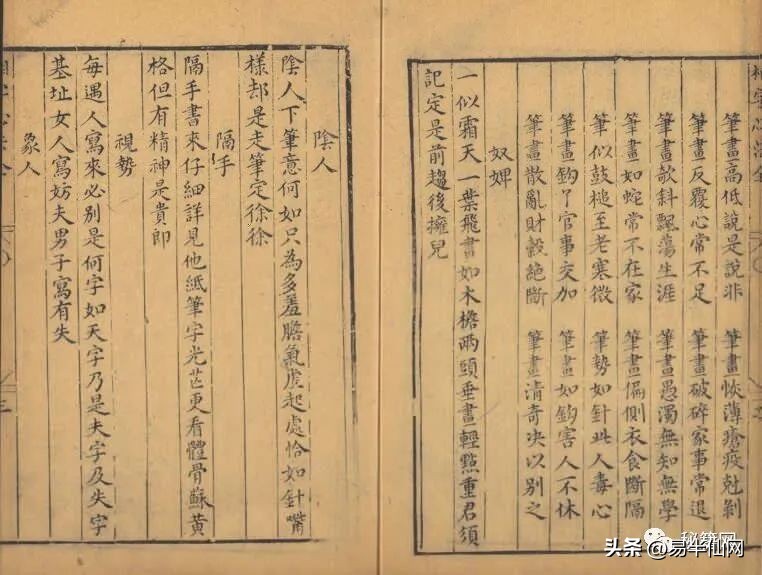 相字心法全
筆畫高低說是說非　筆畫恢薄瘡疫尅剝
筆畫反覆心常不足　筆畫破碎家事常退
筆畫欹斜飄蕩生涯　筆畫愚濁無知無學
筆畫如蛇常不在家　筆畫偏側衣食斷隔
筆似鼓槌至老寒微　筆勢如針此人毒心
筆畫鈎了官事交加　筆畫如鈎害人不休
筆畫散亂財穀絕斷　筆畫清奇决以別之
奴婢
一似霜天一葉飛畫如木檐兩頭垂畫輕㸃重君須
記定是前趨後擁兒
陰人
陰人下筆意何如只為多羞膽氣虛起處恰如針嘴
樣却是走筆定徐徐
隔手
隔手書來仔細詳見他紙筆字光芒更看體骨蘇黃
格但有精神是貴郎
視勢
每遇人寫來必別是何字如天字乃是夫字及失字
基址女人寫妨夫男子寫有失
象人
相字心法全
三
秘籍网
头条 @易牛仙网